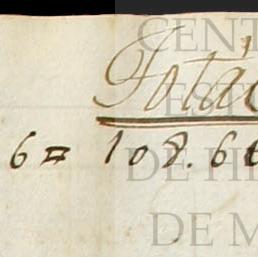 Total
6= 108.6
CENT
EST
DE HI
DE M